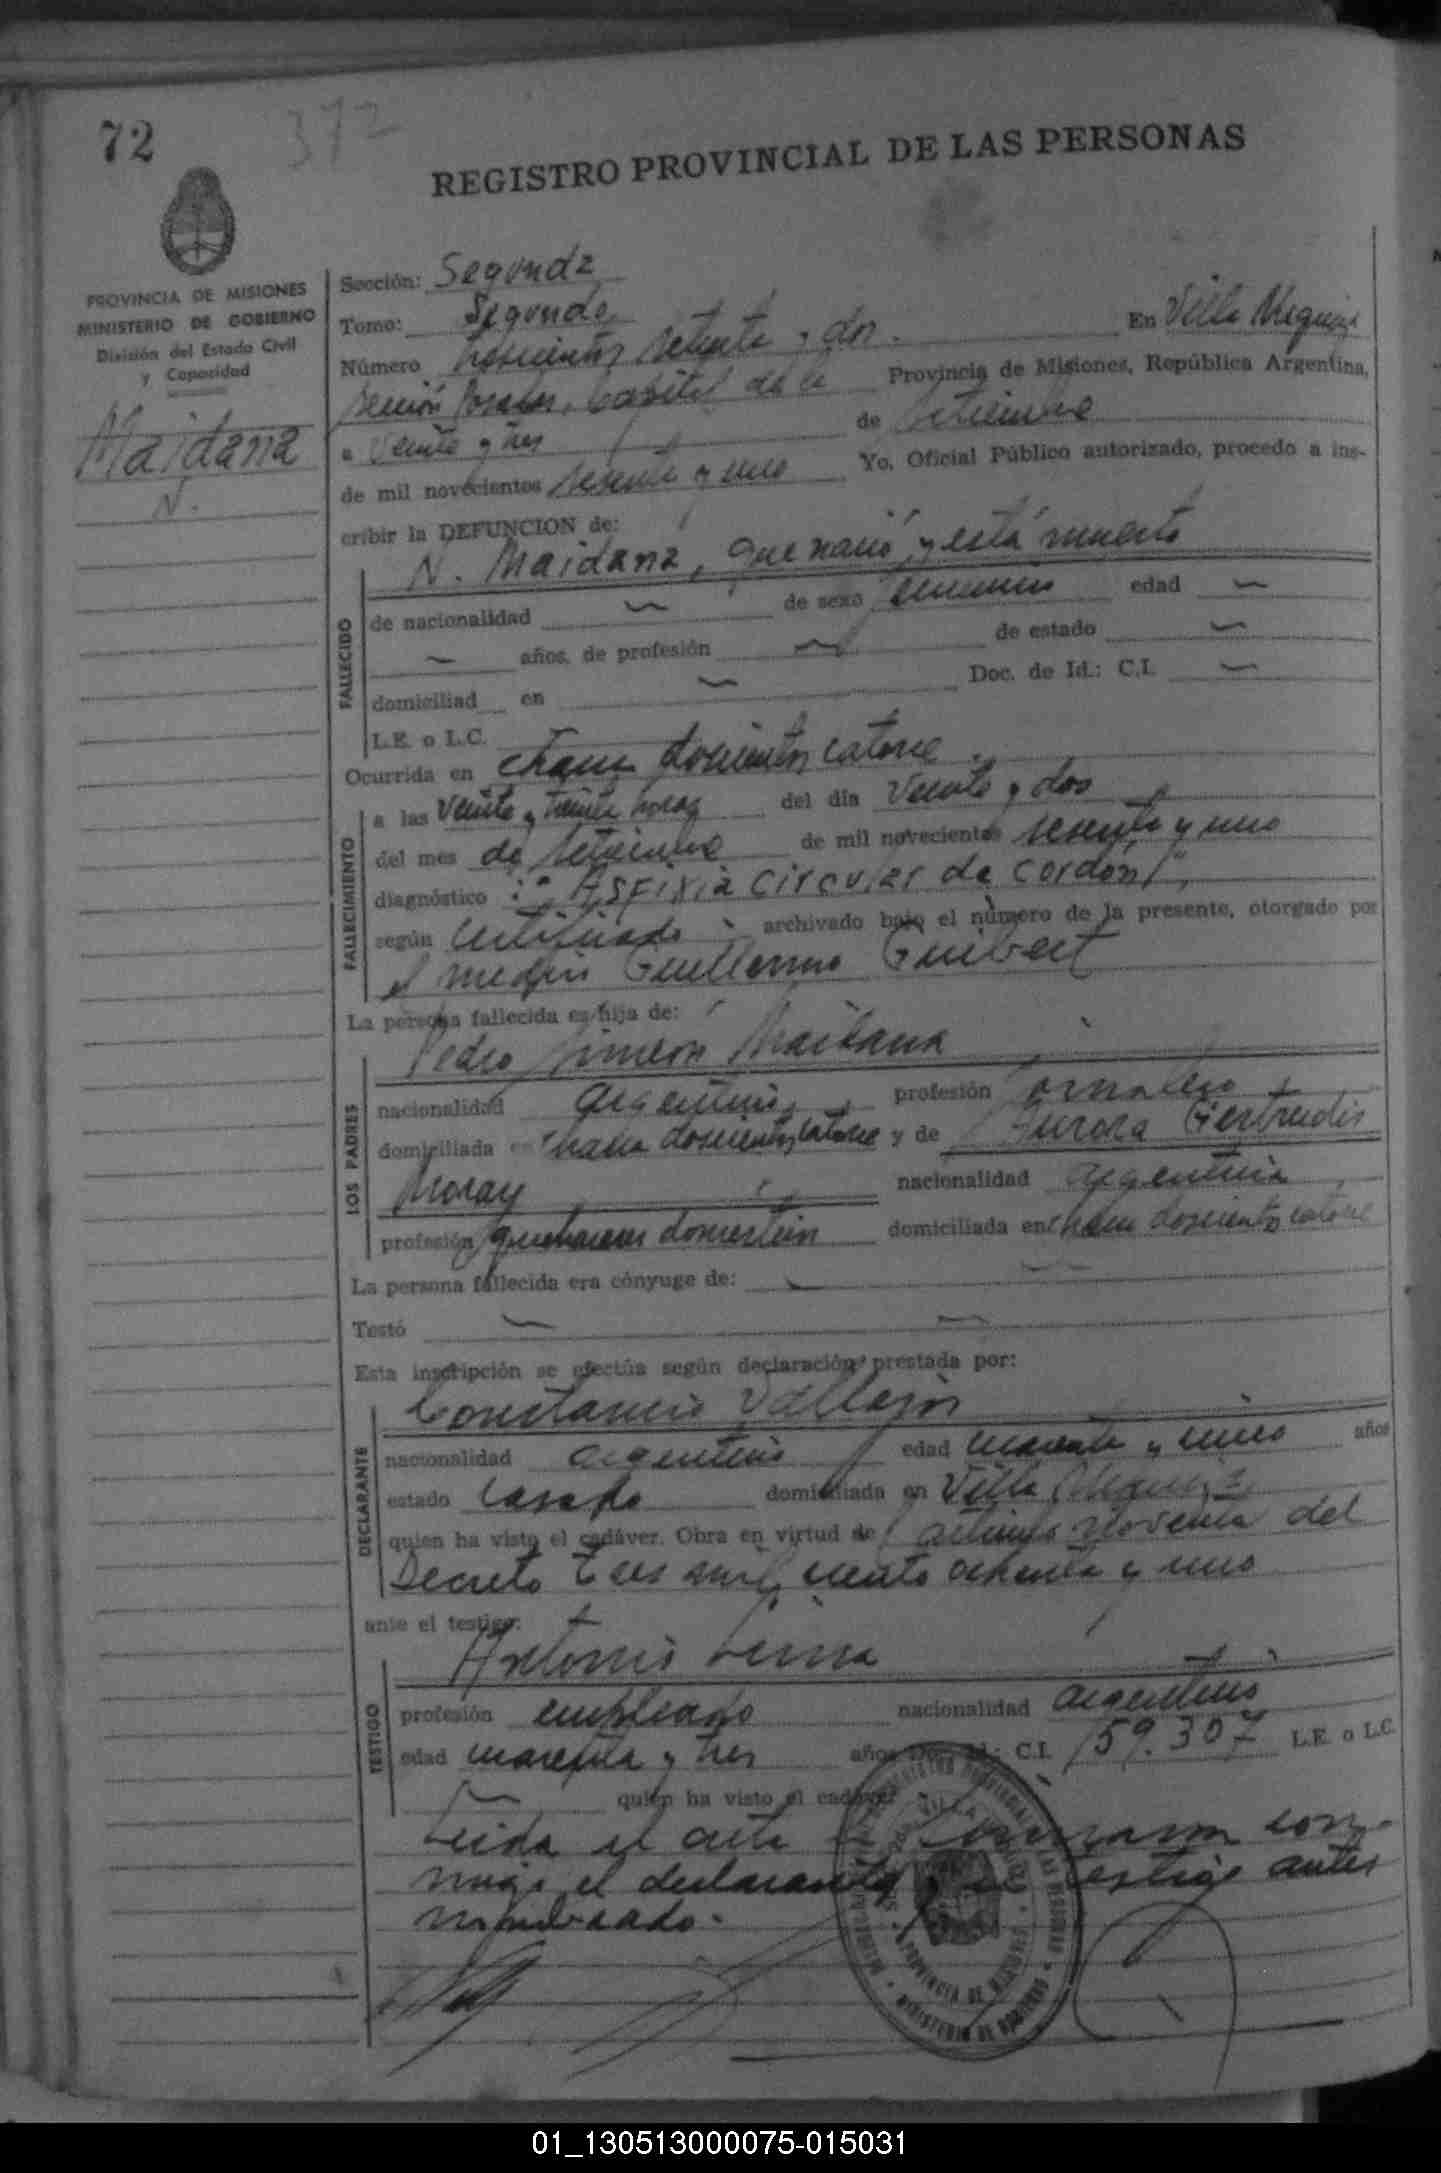 72 372
REGISTRO PROVINCIAL DE LAS PERSONAS
PROVINCIA DE MISIONES
MINISTERIO DE GOBIERNO
División del Estado Civil
y Capacidad
Maidana
N.
Sección: Segunda
Tomo: Segundo En Villa Urquiza
Número trescientos setenta y dos.
sección Posadas, Capital de la Provincia de Misiones, República Argentina,
a veinte y tres de setiembre
de mil novecientos sesenta y uno Yo, Oficial Público autorizado, procedo a ins-
cribir la DEFUNCION de:
N. Maidana, que nació y está muerto
FALLECIDO
de nacionalidad de sexo femenino edad
años, de profesión de estado
domiciliad en Doc. de Id.: C.I.
L.E. o L.C.
Ocurrida en chacra doscientos catorce.
FALLECIMIENTO
a las veinte y treinta horas del día veinte y dos
del mes de setiembre de mil novecientos sesenta y uno
diagnóstico : "Asfixia circular de cordón",
según certificado archivado bajo el número de la presente, otorgado por
el médico Guillermo Guibert
La persona fallecida es hija de:
Pedro Simeón Maidana
LOS PADRES
nacionalidad argentino, profesión jornalero
domiciliada en chacra doscientos catorce y de Aurora Gertrudis
Moray nacionalidad argentina
profesión quehaceres domésticos domiciliada en chacra doscientos catorce
La persona fallecida era cónyuge de:
Testó
Esta inscripción se efectúa según declaración prestada por:
Constancio Vallejos
DECLARANTE
nacionalidad argentino edad cuarenta y cinco años
estado casado domiciliada en Villa Urquiza
quien ha visto el cadáver. Obra en virtud de artículo noventa del
Decreto tres mil ciento ochenta y uno
ante el testigo:
Antonio Lerma
TESTIGO
profesión empleado nacionalidad argentino
edad cuarenta y tres años Doc. Id.: C.I. 159.307 L.E. o L.C.
quien ha visto el cadáver
Leída el acta la firmaron con-
migo el declarante y el testigo antes
nombrado.
PROVINCIA DE MISIONES
MINISTERIO DE GOBIERNO
01_130513000075-015031